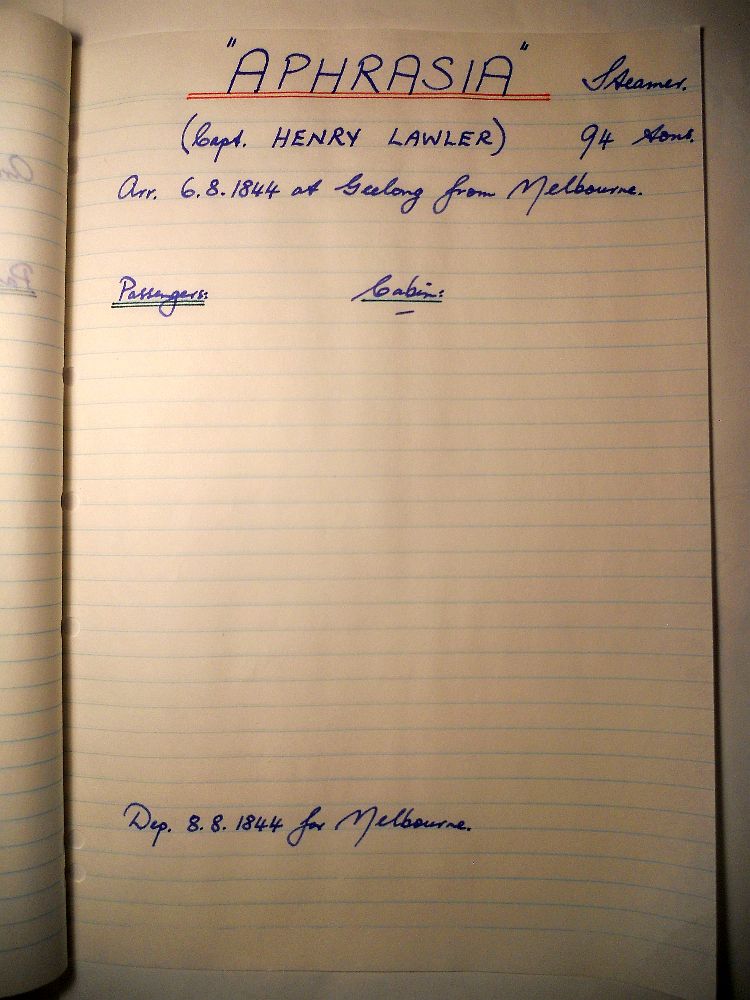 "APHRASIA" Steamer.
(Capt. HENRY LAWLER) 94 tons.
Arr. 6.8.1844 at Geelong from Melbourne.
Passengers: Cabin:
Dep. 8.8.1844 for Melbourne.